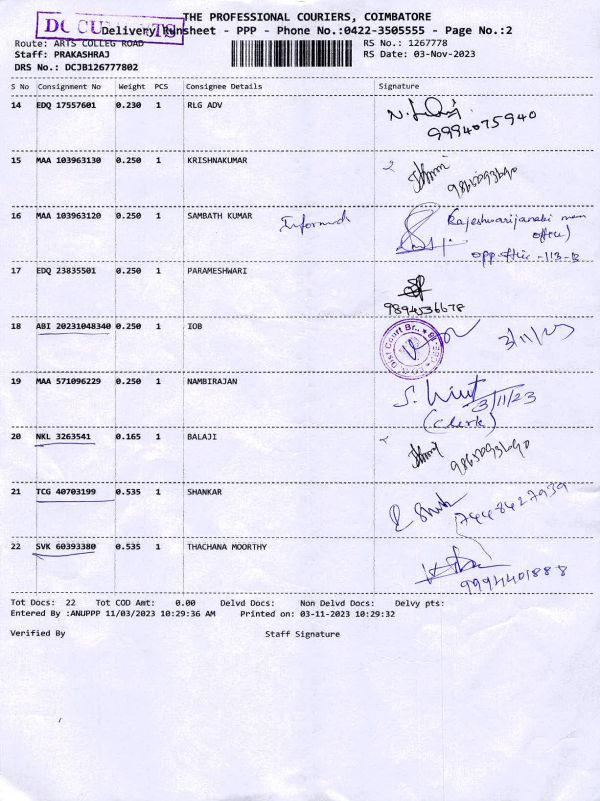 THE PROFESSIONAL COURIERS, COIMBATORE
DOCUMENTS
Delivery Runsheet - PPP - Phone No.:0422-3505555 - Page No.:2
Route: ARTS COLLEG ROAD RS No.: 1267778
Staff: PRAKASHRAJ RS Date: 03-Nov-2023
DRS No.: DCJB126777802
S No Consignment No Weight PCS Consignee Details Signature
14 EDQ 17557601 0.230 1 RLG ADV
9994075940
15 MAA 103963130 0.250 1 KRISHNAKUMAR
16 MAA 103963120 0.250 1 SAMBATH KUMAR Informed
office)
opp.office
17 EDQ 23835501 0.250 1 PARAMESHWARI
9894536678
18 ABI 20231048340 0.250 1 IOB
Dist Court Br.,
3/11/23
19 MAA 571096229 0.250 1 NAMBIRAJAN
3/11/23
(Clerk)
20 NKL 3263541 0.165 1 BALAJI
21 TCG 40703199 0.535 1 SHANKAR
7448427939
22 SVK 60393380 0.535 1 THACHANA MOORTHY
9994401888
Tot Docs: 22 Tot COD Amt: 0.00 Delvd Docs: Non Delvd Docs: Delvy pts:
Entered By :ANUPPP 11/03/2023 10:29:36 AM Printed on: 03-11-2023 10:29:32
Verified By Staff Signature